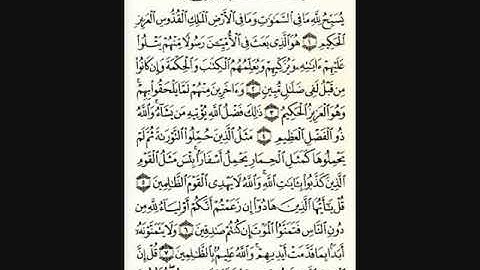 يُسَبِّحُ لِلَّهِ مَا فِي ٱلسَّمَٰوَٰتِ وَمَا فِي ٱلْأَرْضِ ٱلْمَلِكِ ٱلْقُدُّوسِ ٱلْعَزِيزِ
ٱلْحَكِيمِ ١ هُوَ ٱلَّذِي بَعَثَ فِي ٱلْأُمِّيِّـۧنَ رَسُولًا مِّنْهُمْ يَتْلُوا۟
عَلَيْهِمْ ءَايَٰتِهِۦ وَيُزَكِّيهِمْ وَيُعَلِّمُهُمُ ٱلْكِتَٰبَ وَٱلْحِكْمَةَ وَإِن كَانُوا۟
مِن قَبْلُ لَفِي ضَلَٰلٍ مُّبِينٍ ٢ وَءَاخَرِينَ مِنْهُمْ لَمَّا يَلْحَقُوا۟ بِهِمْ
وَهُوَ ٱلْعَزِيزُ ٱلْحَكِيمُ ٣ ذَٰلِكَ فَضْلُ ٱللَّهِ يُؤْتِيهِ مَن يَشَآءُ وَٱللَّهُ
ذُو ٱلْفَضْلِ ٱلْعَظِيمِ ٤ مَثَلُ ٱلَّذِينَ حُمِّلُوا۟ ٱلتَّوْرَىٰةَ ثُمَّ لَمْ
يَحْمِلُوهَا كَمَثَلِ ٱلْحِمَارِ يَحْمِلُ أَسْفَارًۢا بِئْسَ مَثَلُ ٱلْقَوْمِ
ٱلَّذِينَ كَذَّبُوا۟ بِـَٔايَٰتِ ٱللَّهِ وَٱللَّهُ لَا يَهْدِي ٱلْقَوْمَ ٱلظَّٰلِمِينَ ٥
قُلْ يَٰٓأَيُّهَا ٱلَّذِينَ هَادُوٓا۟ إِن زَعَمْتُمْ أَنَّكُمْ أَوْلِيَآءُ لِلَّهِ مِن
دُونِ ٱلنَّاسِ فَتَمَنَّوُا۟ ٱلْمَوْتَ إِن كُنتُمْ صَٰدِقِينَ ٦ وَلَا يَتَمَنَّوْنَهُۥٓ
أَبَدًۢا بِمَا قَدَّمَتْ أَيْدِيهِمْ وَٱللَّهُ عَلِيمٌۢ بِٱلظَّٰلِمِينَ ٧ قُلْ إِنَّ